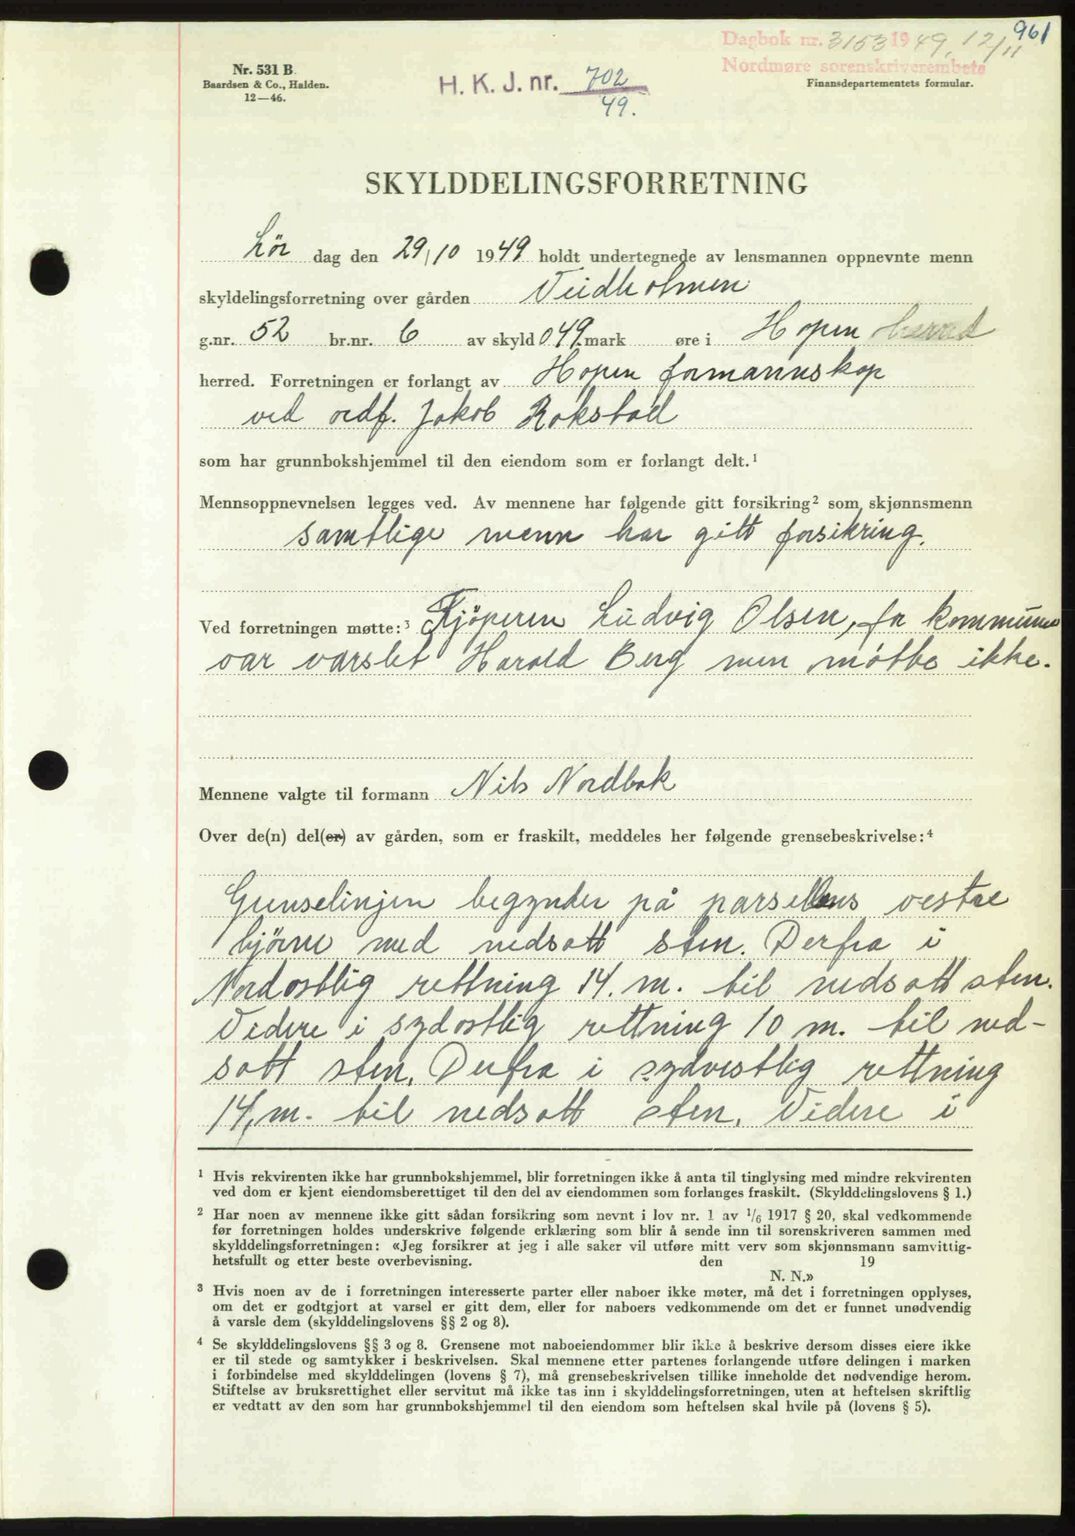 961
Dagbok nr. 3153 1949, 12/11
Nordmøre sorenskriverembete
Nr. 531 B.
Baardsen & Co., Halden.
12—46.
H. K. J. nr. 702/49.
Finansdepartementets formular.
SKYLDDELINGSFORRETNING
Lör dag den 29/10 1949 holdt undertegnede av lensmannen oppnevnte menn
skyldelingsforretning over gården Veidholmen
g.nr. 52 br.nr. 6 av skyld 0 49. mark øre i Hopen herred
herred. Forretningen er forlangt av Hopen formannskap
ved ordf. Jakob Rokstad
som har grunnbokshjemmel til den eiendom som er forlangt delt.¹
Mennsoppnevnelsen legges ved. Av mennene har følgende gitt forsikring² som skjønnsmenn
samtlige menn har gitt forsikring.
Ved forretningen møtte:³ Kjöperen Ludvig Olsen, for kommunen
var varslet Harald Berg men møtte ikke.
Mennene valgte til formann Nils Nordbak
Over de(n) del(er) av gården, som er fraskilt, meddeles her følgende grensebeskrivelse:⁴
Grenselinjen begynder på parsellens vestre
hjörne med nedsatt sten. Derfra i
Nordostlig rettning 14. m. til nedsatt sten.
Videre i sydostlig rettning 10 m. til ned-
satt sten. Derfra i sydvestlig rettning
14, m. til nedsatt sten. Videre i
¹ Hvis rekvirenten ikke har grunnbokshjemmel, blir forretningen ikke å anta til tinglysing med mindre rekvirenten
ved dom er kjent eiendomsberettiget til den del av eiendommen som forlanges fraskilt. (Skylddelingslovens § 1.)
² Har noen av mennene ikke gitt sådan forsikring som nevnt i lov nr. 1 av 1/6 1917 § 20, skal vedkommende
før forretningen holdes underskrive følgende erklæring som blir å sende inn til sorenskriveren sammen med
skylddelingsforretningen: «Jeg forsikrer at jeg i alle saker vil utføre mitt verv som skjønnsmann samvittig-
hetsfullt og etter beste overbevisning. den 19
N. N.»
³ Hvis noen av de i forretningen interesserte parter eller naboer ikke møter, må det i forretningen opplyses,
om det er godtgjort at varsel er gitt dem, eller for naboers vedkommende om det er funnet unødvendig
å varsle dem (skylddelingslovens §§ 2 og 8).
⁴ Se skylddelingslovens §§ 3 og 8. Grensene mot naboeiendommer blir ikke å beskrive dersom disses eiere ikke
er til stede og samtykker i beskrivelsen. Skal mennene etter partenes forlangende utføre delingen i marken
i forbindelse med skylddelingen (lovens § 7), må grensebeskrivelsen tillike inneholde det nødvendige herom.
Stiftelse av bruksrettighet eller servitut må ikke tas inn i skylddelingsforretningen, uten at heftelsen skriftlig
er vedtatt av den som har grunnbokshjemmel til den eiendom som heftelsen skal hvile på (lovens § 5).